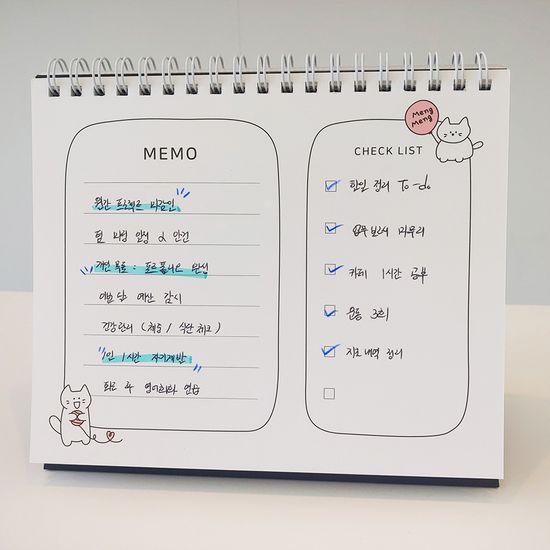 MEMO
월간 프로젝트 마감일
팀 미팅 일정 & 안건
개인 목표 : 포트폴리오 완성
이번 달 예산 감시
건강관리 ( / 식단 체크)
1인 1시간 자기개발
퇴근 후 영어회화 연습
Meng
Meng
CHECK LIST
할일 정리 To-do
업무 보고서 마무리
카페 1시간 공부
운동 3회
지출 내역 정리